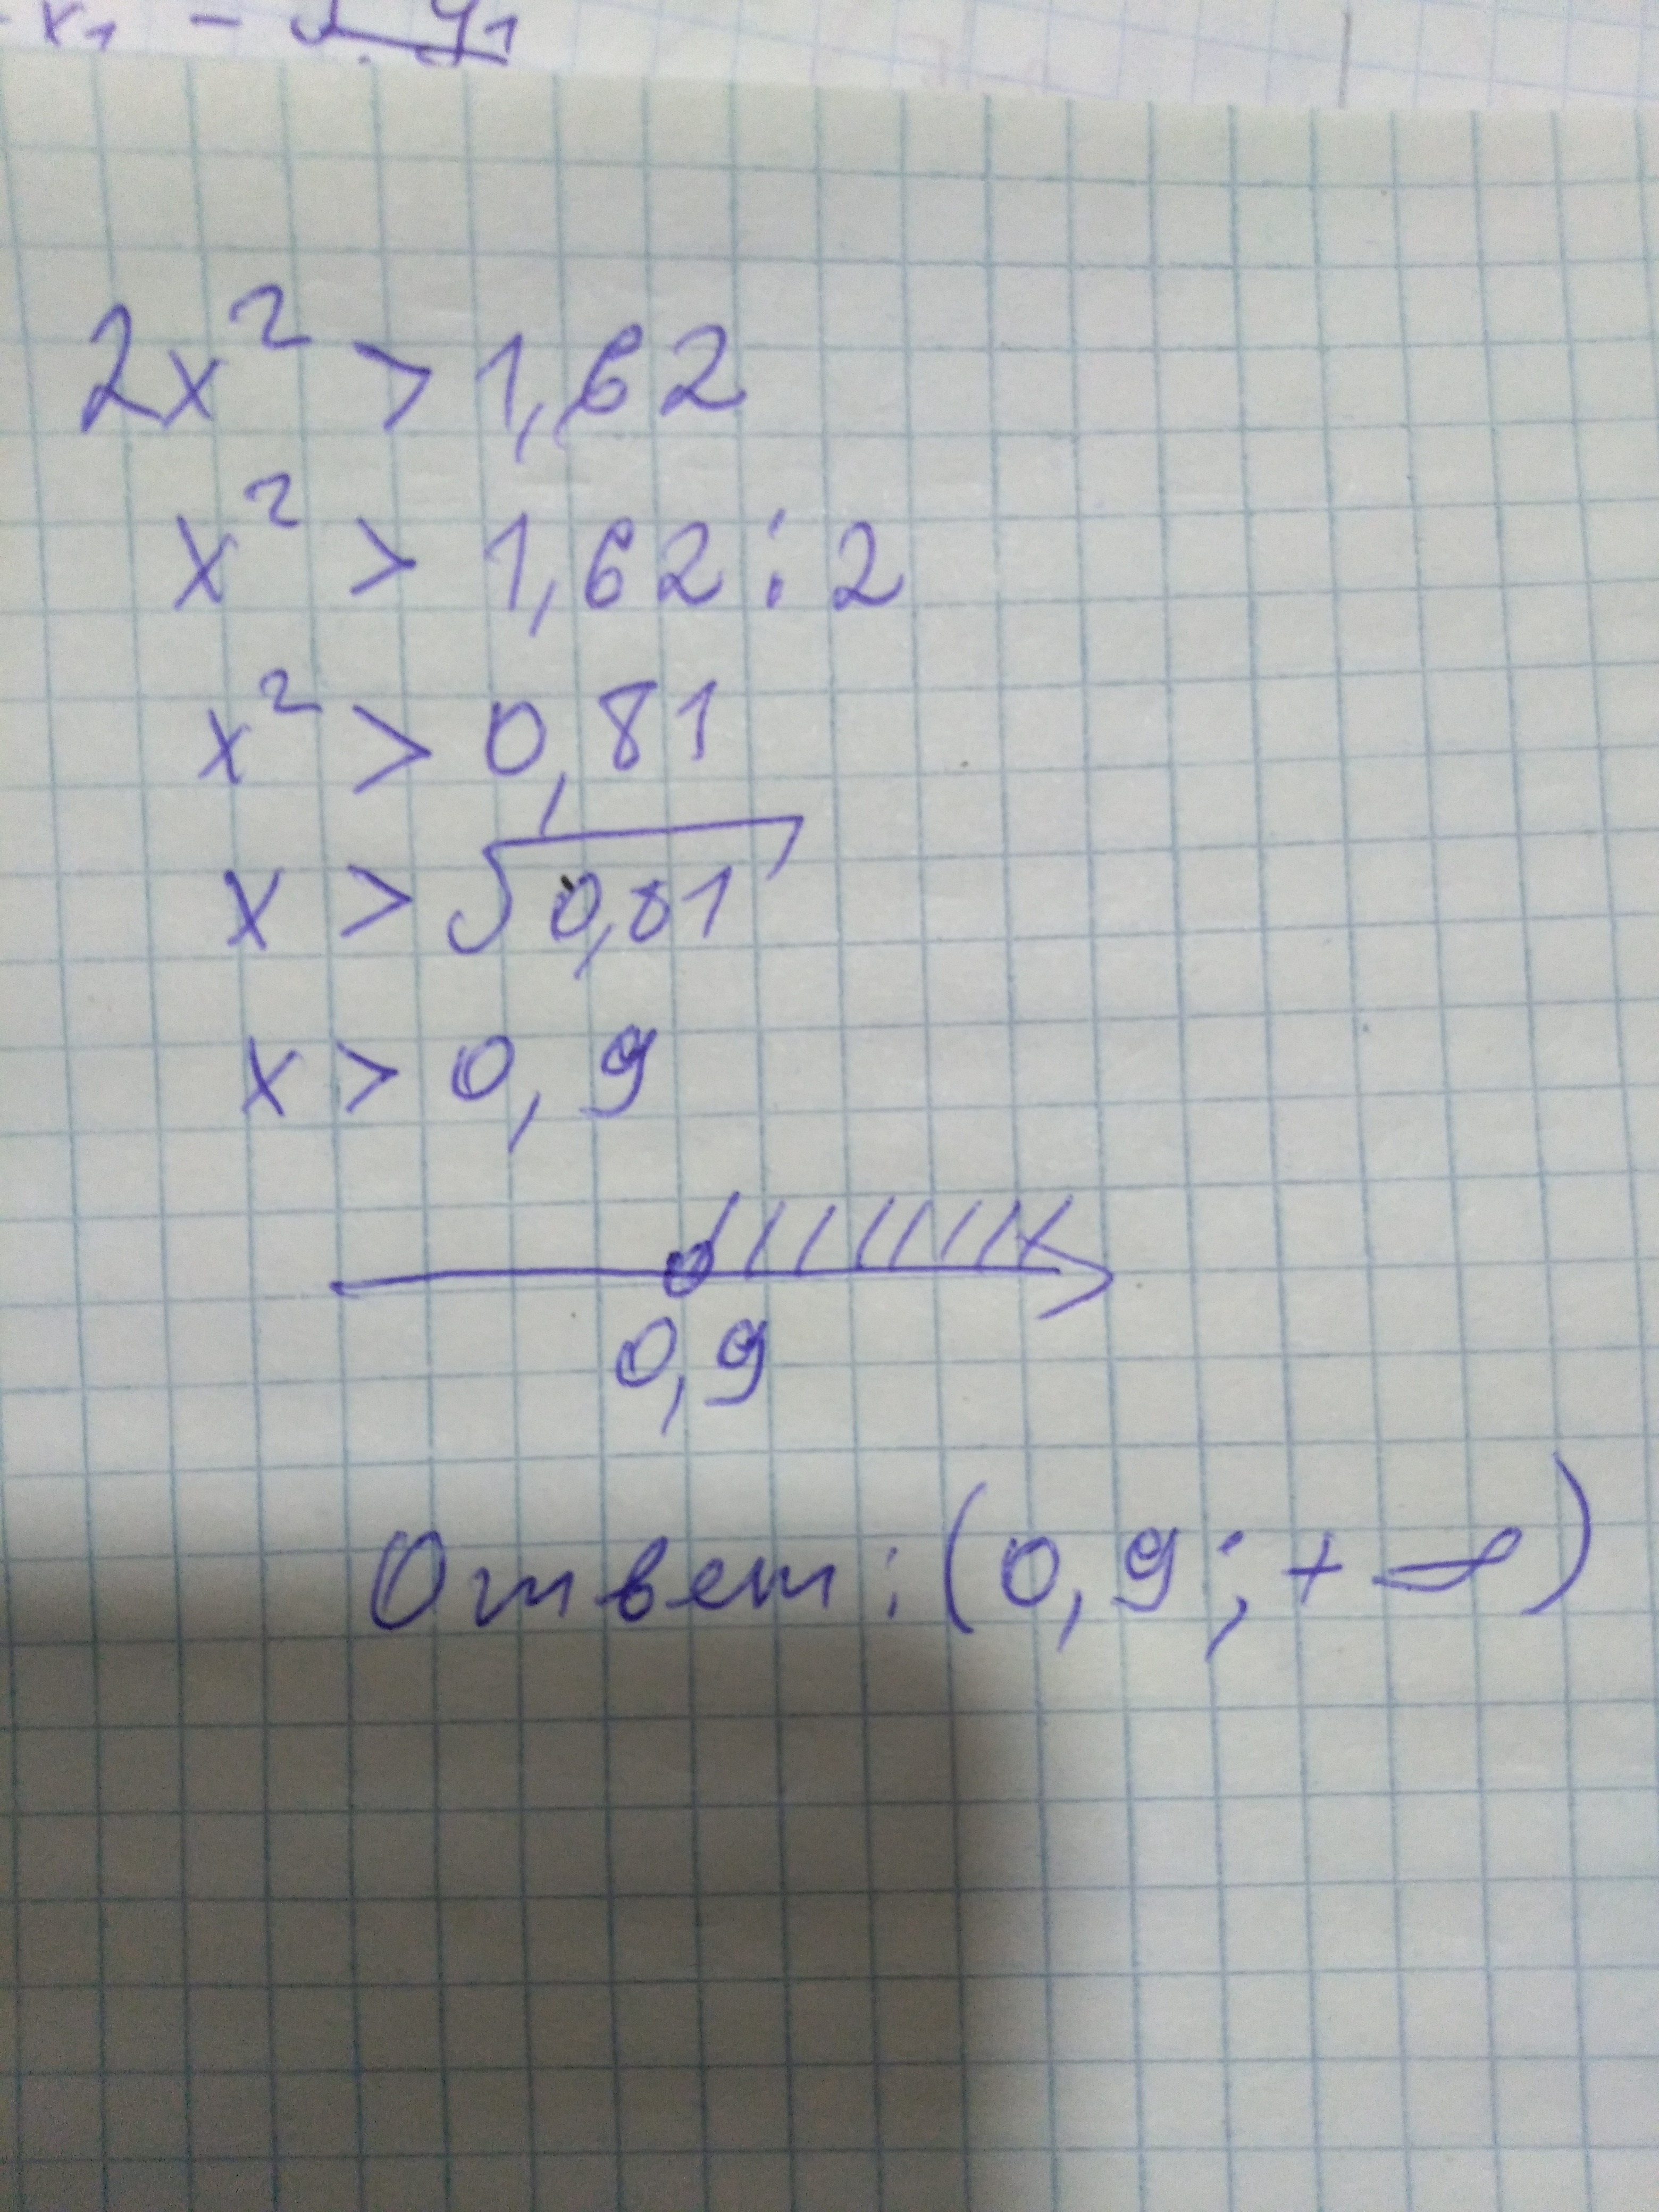 2x² > 1,62
x² > 1,62 : 2
x² > 0,81
x > √0,81
x > 0,9
0,9
Ответ: (0,9; +∞)